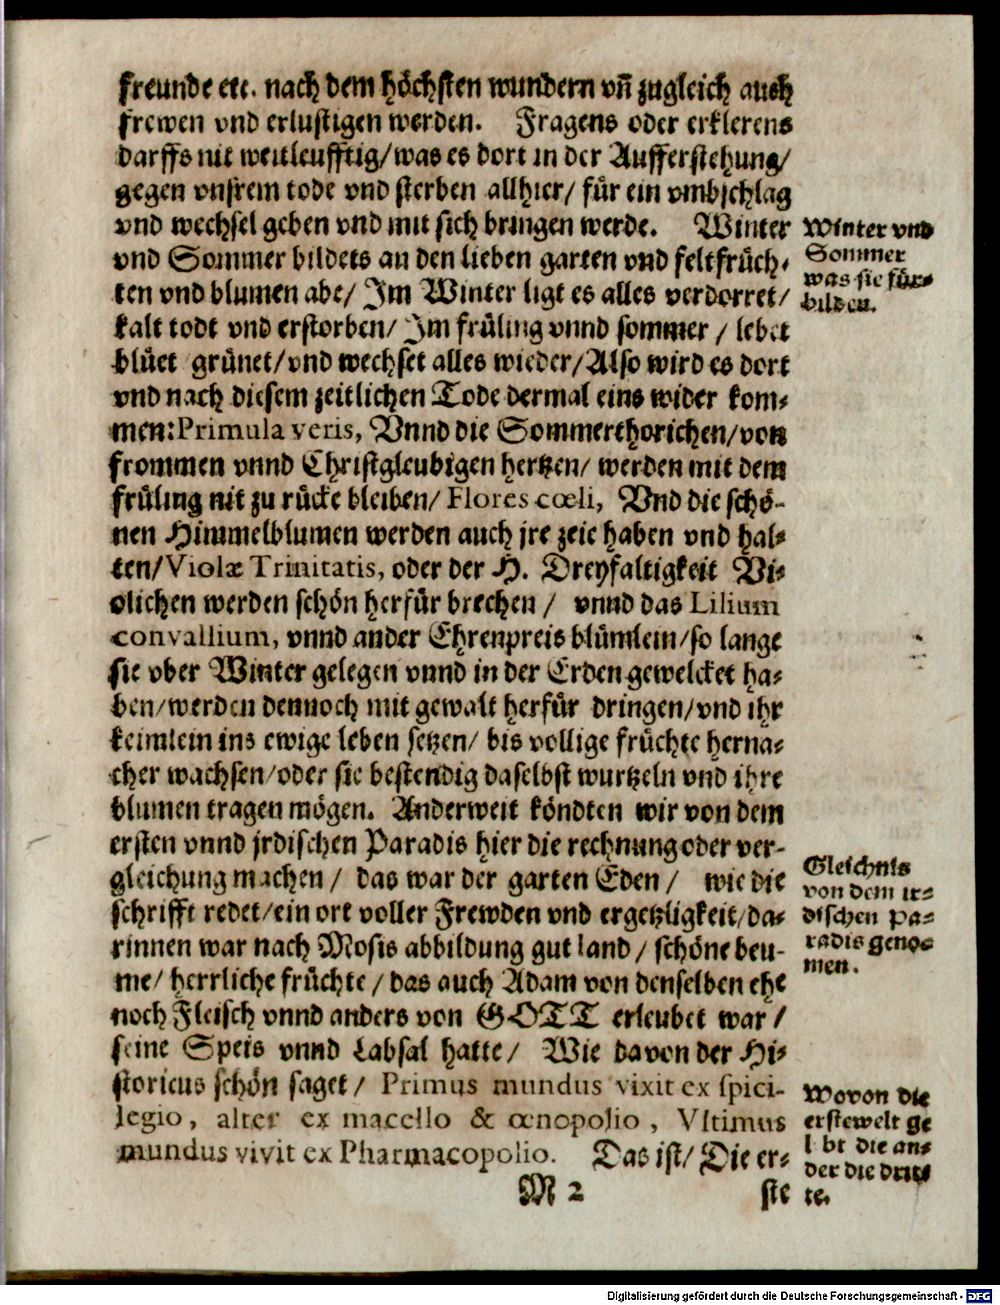 freunde etc. nach dem höchsten wundern vn̄ zugleich auch
frewen vnd erlustigen werden. Fragens oder erklerens
darffs nit weitleufftig/was es dort in der Aufferstehung/
gegen vnsrem tode vnd sterben allhier/ für ein vmbschlag
vnd wechsel geben vnd mit sich bringen werde. Winter
vnd Sommer bildets an den lieben garten vnd feltfrüch-
ten vnd blumen abe/ Im Winter ligt es alles verdorret/
kalt todt vnd erstorben/ Im früling vnnd sommer / lebet
blüet grünet/vnd wechset alles wieder/Also wird es dort
vnd nach diesem zeitlichen Tode dermal eins wider kom-
men:Primula veris, Vnnd die Sommerthorichen/von
frommen vnnd Christgleubigen hertzen/ werden mit dem
früling nit zu rücke bleiben/ Flores cœli, Vnd die schö-
nen Himmelblumen werden auch jre zeit haben vnd hal-
ten/Violæ Trinitatis, oder der H. Dreyfaltigkeit Vi-
olichen werden schön herfür brechen / vnnd das Lilium
convallium, vnnd ander Ehrenpreis blümlein/so lange
sie vber Winter gelegen vnnd in der Erden gewelcket ha-
ben/werden dennoch mit gewalt herfür dringen/vnd ihr
keimlein ins ewige leben setzen/ bis vollige früchte herna-
cher wachsen/oder sie bestendig daselbst wurtzeln vnd ihre
blumen tragen mögen. Anderweit köndten wir von dem
ersten vnnd jrdischen Paradis hier die rechnung oder ver-
gleichung machen / das war der garten Eden / wie die
schrifft redet/ein ort voller Frewden vnd ergetzligkeit/da-
rinnen war nach Mosis abbildung gut land / schöne beu-
me/ herrliche früchte / das auch Adam von denselben ehe
noch Fleisch vnnd anders von GOTT erleubet war /
seine Speis vnnd Labsal hatte/ Wie davon der Hi-
storicus schön saget / Primus mundus vixit ex spici-
legio, alter ex macello & œnopolio, Vltimus
mundus vivit ex Pharmacopolio. Das ist/ Die er-
M 2 ste
Winter vnd
Sommer
was sie für-
bilden.
Gleichnis
von dem ir-
dischen pa-
radis geno-
men.
Wovon die
erstewelt ge
l bt die an-
der die drit-
te.
Digitalisierung gefördert durch die Deutsche Forschungsgemeinschaft - DFG